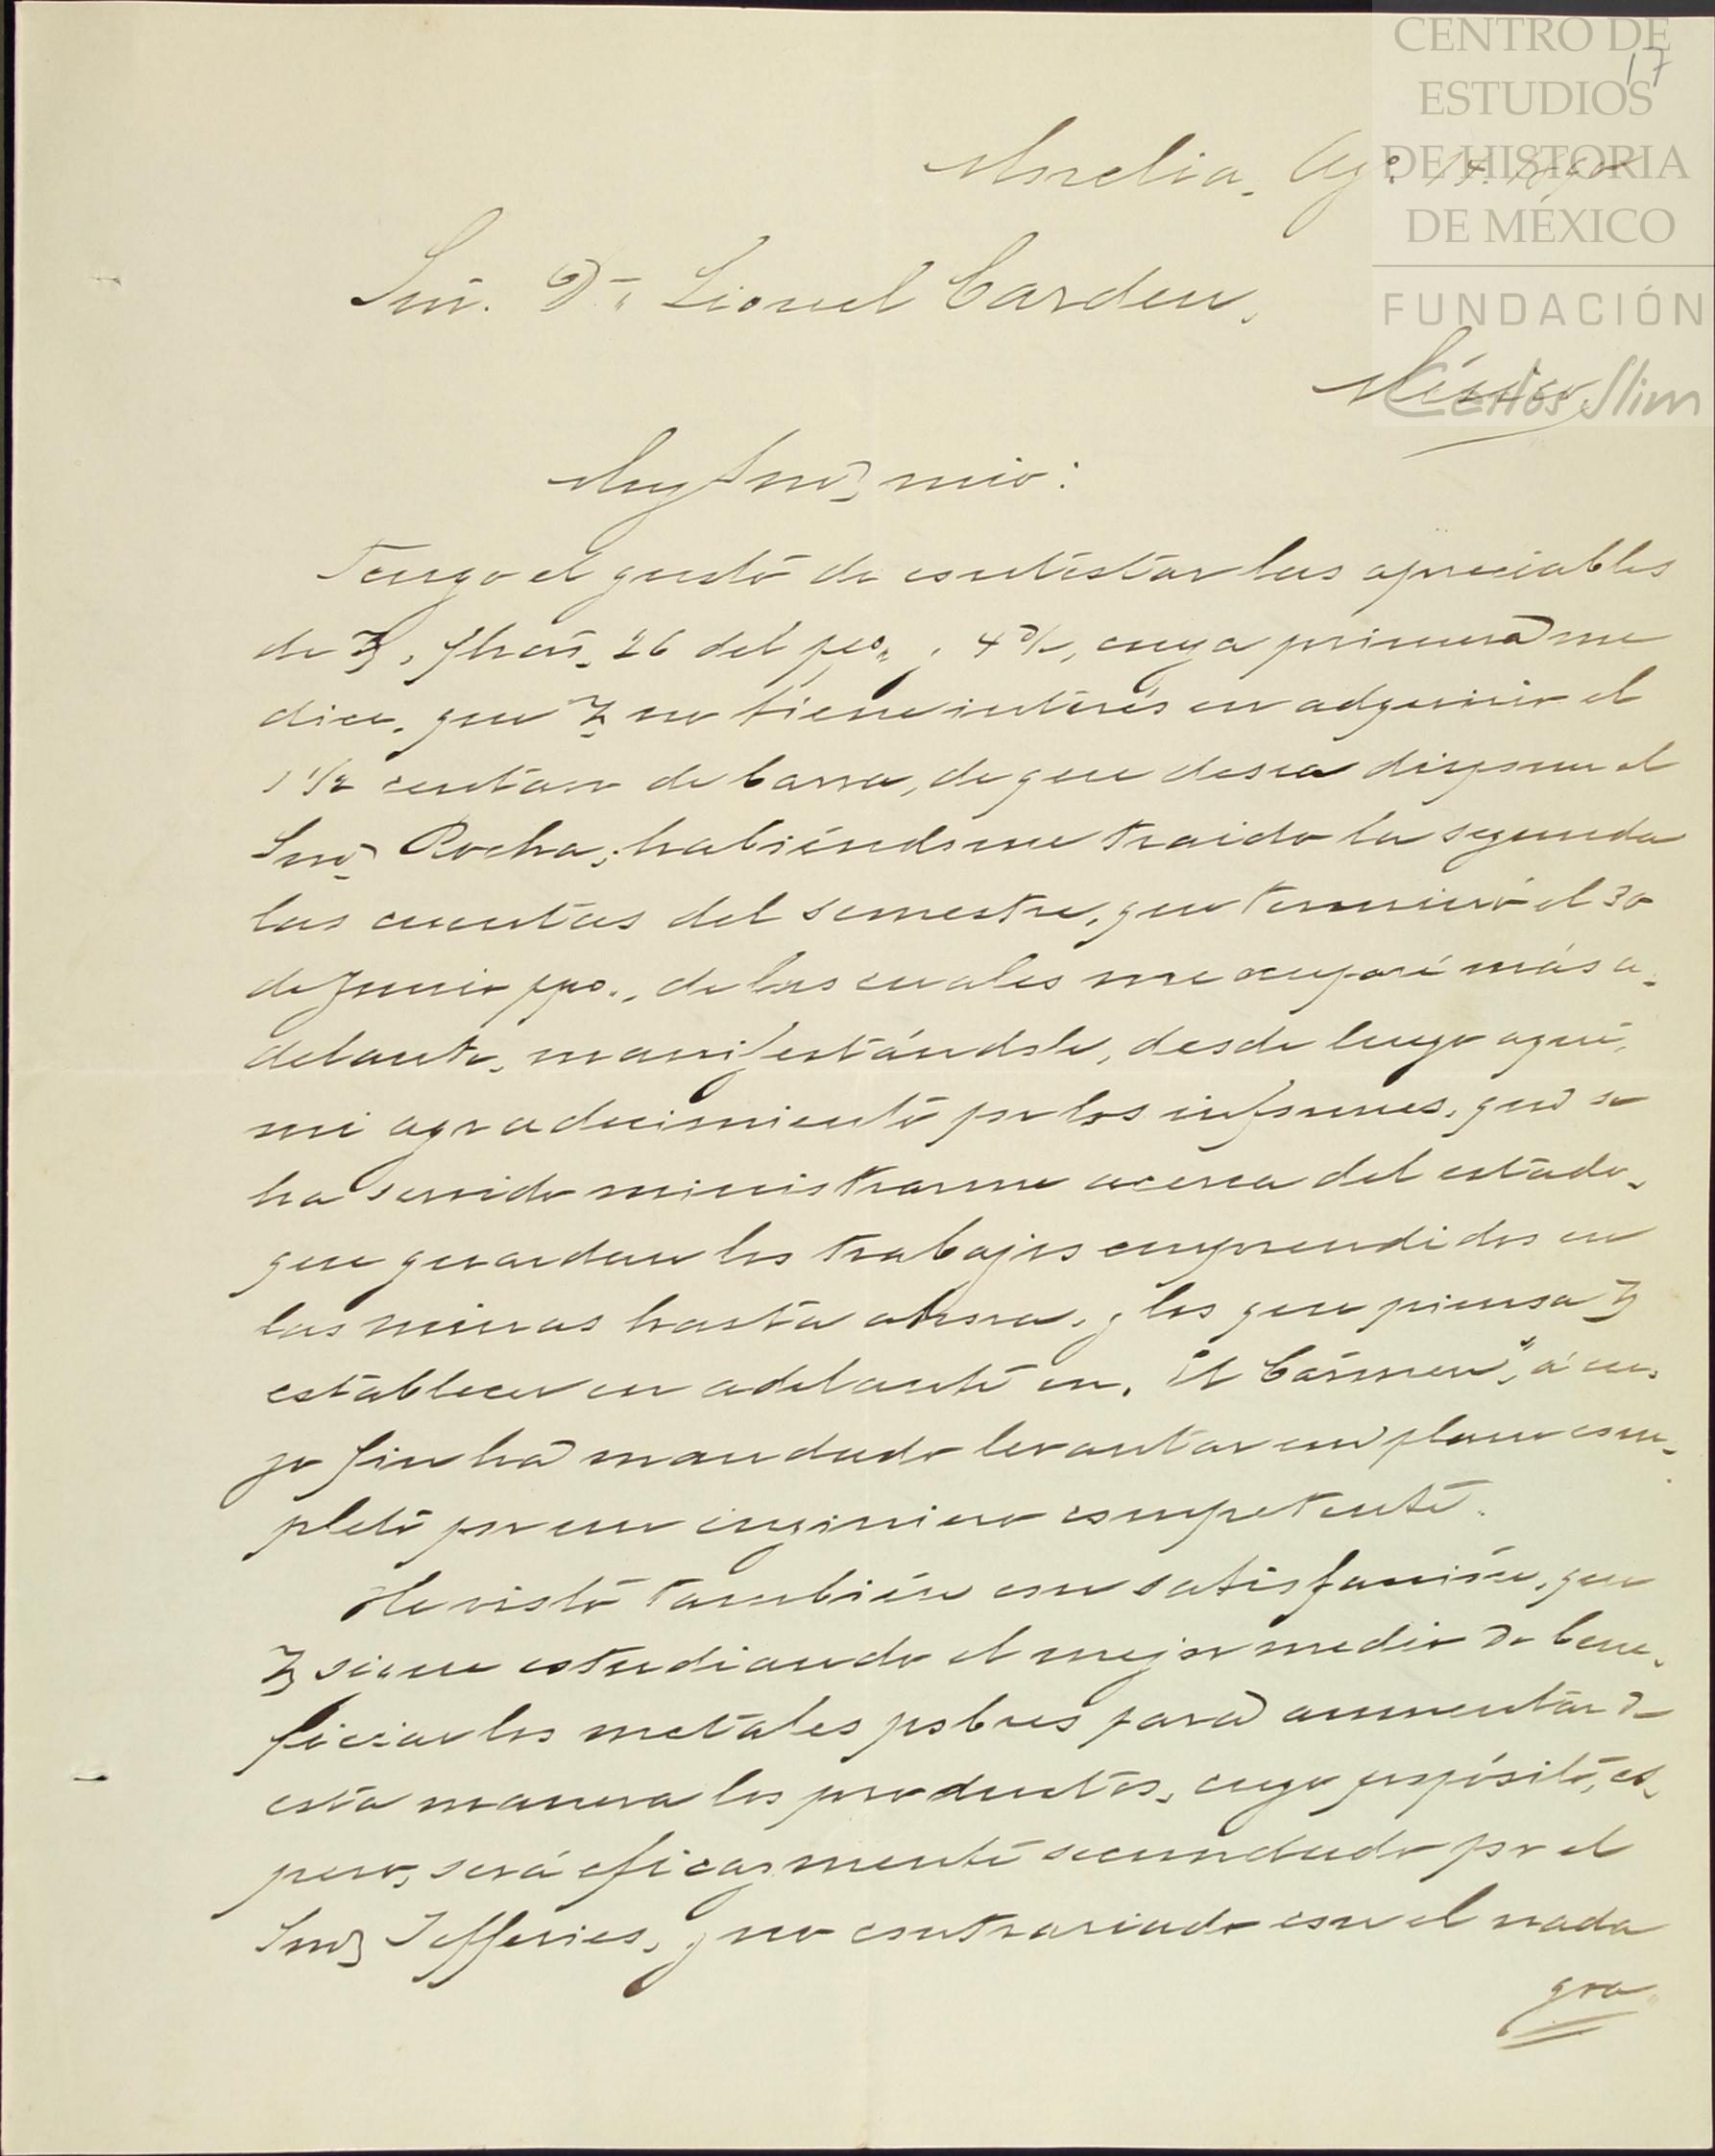 CENTRO DE
ESTUDIOS
DE HISTORIA
DE MÉXICO
FUNDACIÓN
Carlos Slim
17
Morelia, Agº. 1890
Sñr. Dn. Lionel Carden,
México,
Muy Snr. mio:
Tengo el gusto de contestar las apreciables
de V., fhas. 26 del ppo., y 4 , cuya primera me
dice, que V. no tiene interés en adquirir el
1 1/2 centavo de barra, de que desea disponer el
Snr. Rocha; habiéndome traido la segunda
las cuentas del semestre, que terminó el 30
de Junio ppo., de las cuales me ocuparé más a-
delante, manifestándole, desde luego aquí,
mi agradecimiento por los informes, que se
ha servido ministrarme acerca del estado,
que guardan los trabajos emprendidos en
las minas hasta ahora, y los que piensa V.
establecer en adelante en, "El Cármen", á cu-
yo fin ha mandado levantar un plano com-
pleto por un inginiero competente.
He visto también con satisfacción, que
V. sigue estudiando el mejor medio de bene-
ficiar los metales pobres para aumentar de
esta manera los productos, cuyo propósito, es-
pero, será eficazmente secundado por el
Snr. Jefferies, y no contrariado con el nada
gra-